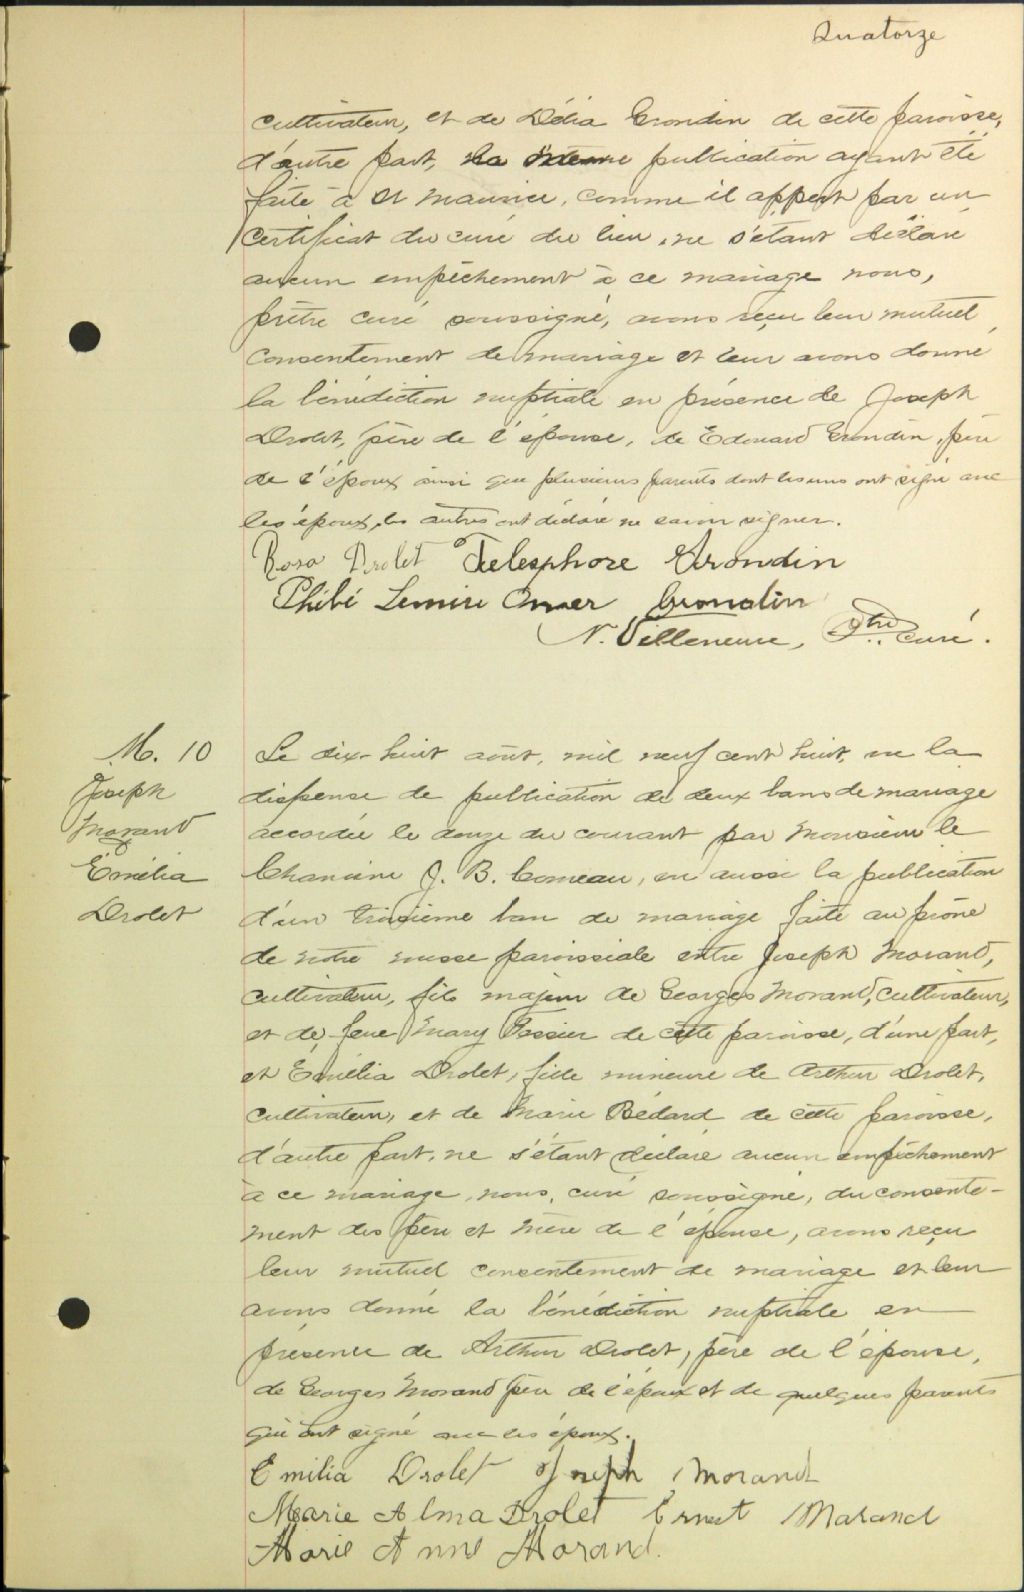 Quatorze
cultivateur, et de Délia Grondin de cette paroisse,
d'autre part, la même publication ayant été
faite à St Maurice, comme il appert par un
certificat du curé du lieu, ne s'étant déclaré
aucun empêchement à ce mariage nous,
prêtre curé soussigné, avons reçu leur mutuel
consentement de mariage et leur avons donné
la bénédiction nuptiale en présence de Joseph
Drolet, père de l'épouse, de Edouard Grondin, père
de l'époux ainsi que plusieurs parents dont les uns ont signé avec
les époux, les autres ont déclaré ne savoir signer.
Rosa Drolet Telesphore Grondin
Phébé Lemire Omer Grondin
N. Villeneuve, Ptre curé.
M. 10
Joseph
Morand
&
Émélia
Drolet
Le dix-huit août, mil neuf cent huit, vu la
dispense de publication de deux bans de mariage
accordée le douze du courant par Monsieur le
Chanoine J. B. Comeau, vu aussi la publication
d'un troisième ban de mariage faite au prône
de notre messe paroissiale entre Joseph Morand,
cultivateur, fils majeur de Georges Morand, cultivateur,
et de feue Mary Tessier de cette paroisse, d'une part,
et Emélia Drolet, fille mineure de Arthur Drolet,
cultivateur, et de Marie Bédard de cette paroisse,
d'autre part, ne s'étant déclaré aucun empêchement
à ce mariage, nous, curé soussigné, du consente-
ment des père et mère de l'épouse, avons reçu
leur mutuel consentement de mariage et leur
avons donné la bénédiction nuptiale en
présence de Arthur Drolet, père de l'épouse,
de Georges Morand père de l'époux et de quelques parents
qui ont signé avec les époux.
Emilia Drolet Joseph Morand
Marie Alma Drolet Ernest Morand
Marie Anne Morand.